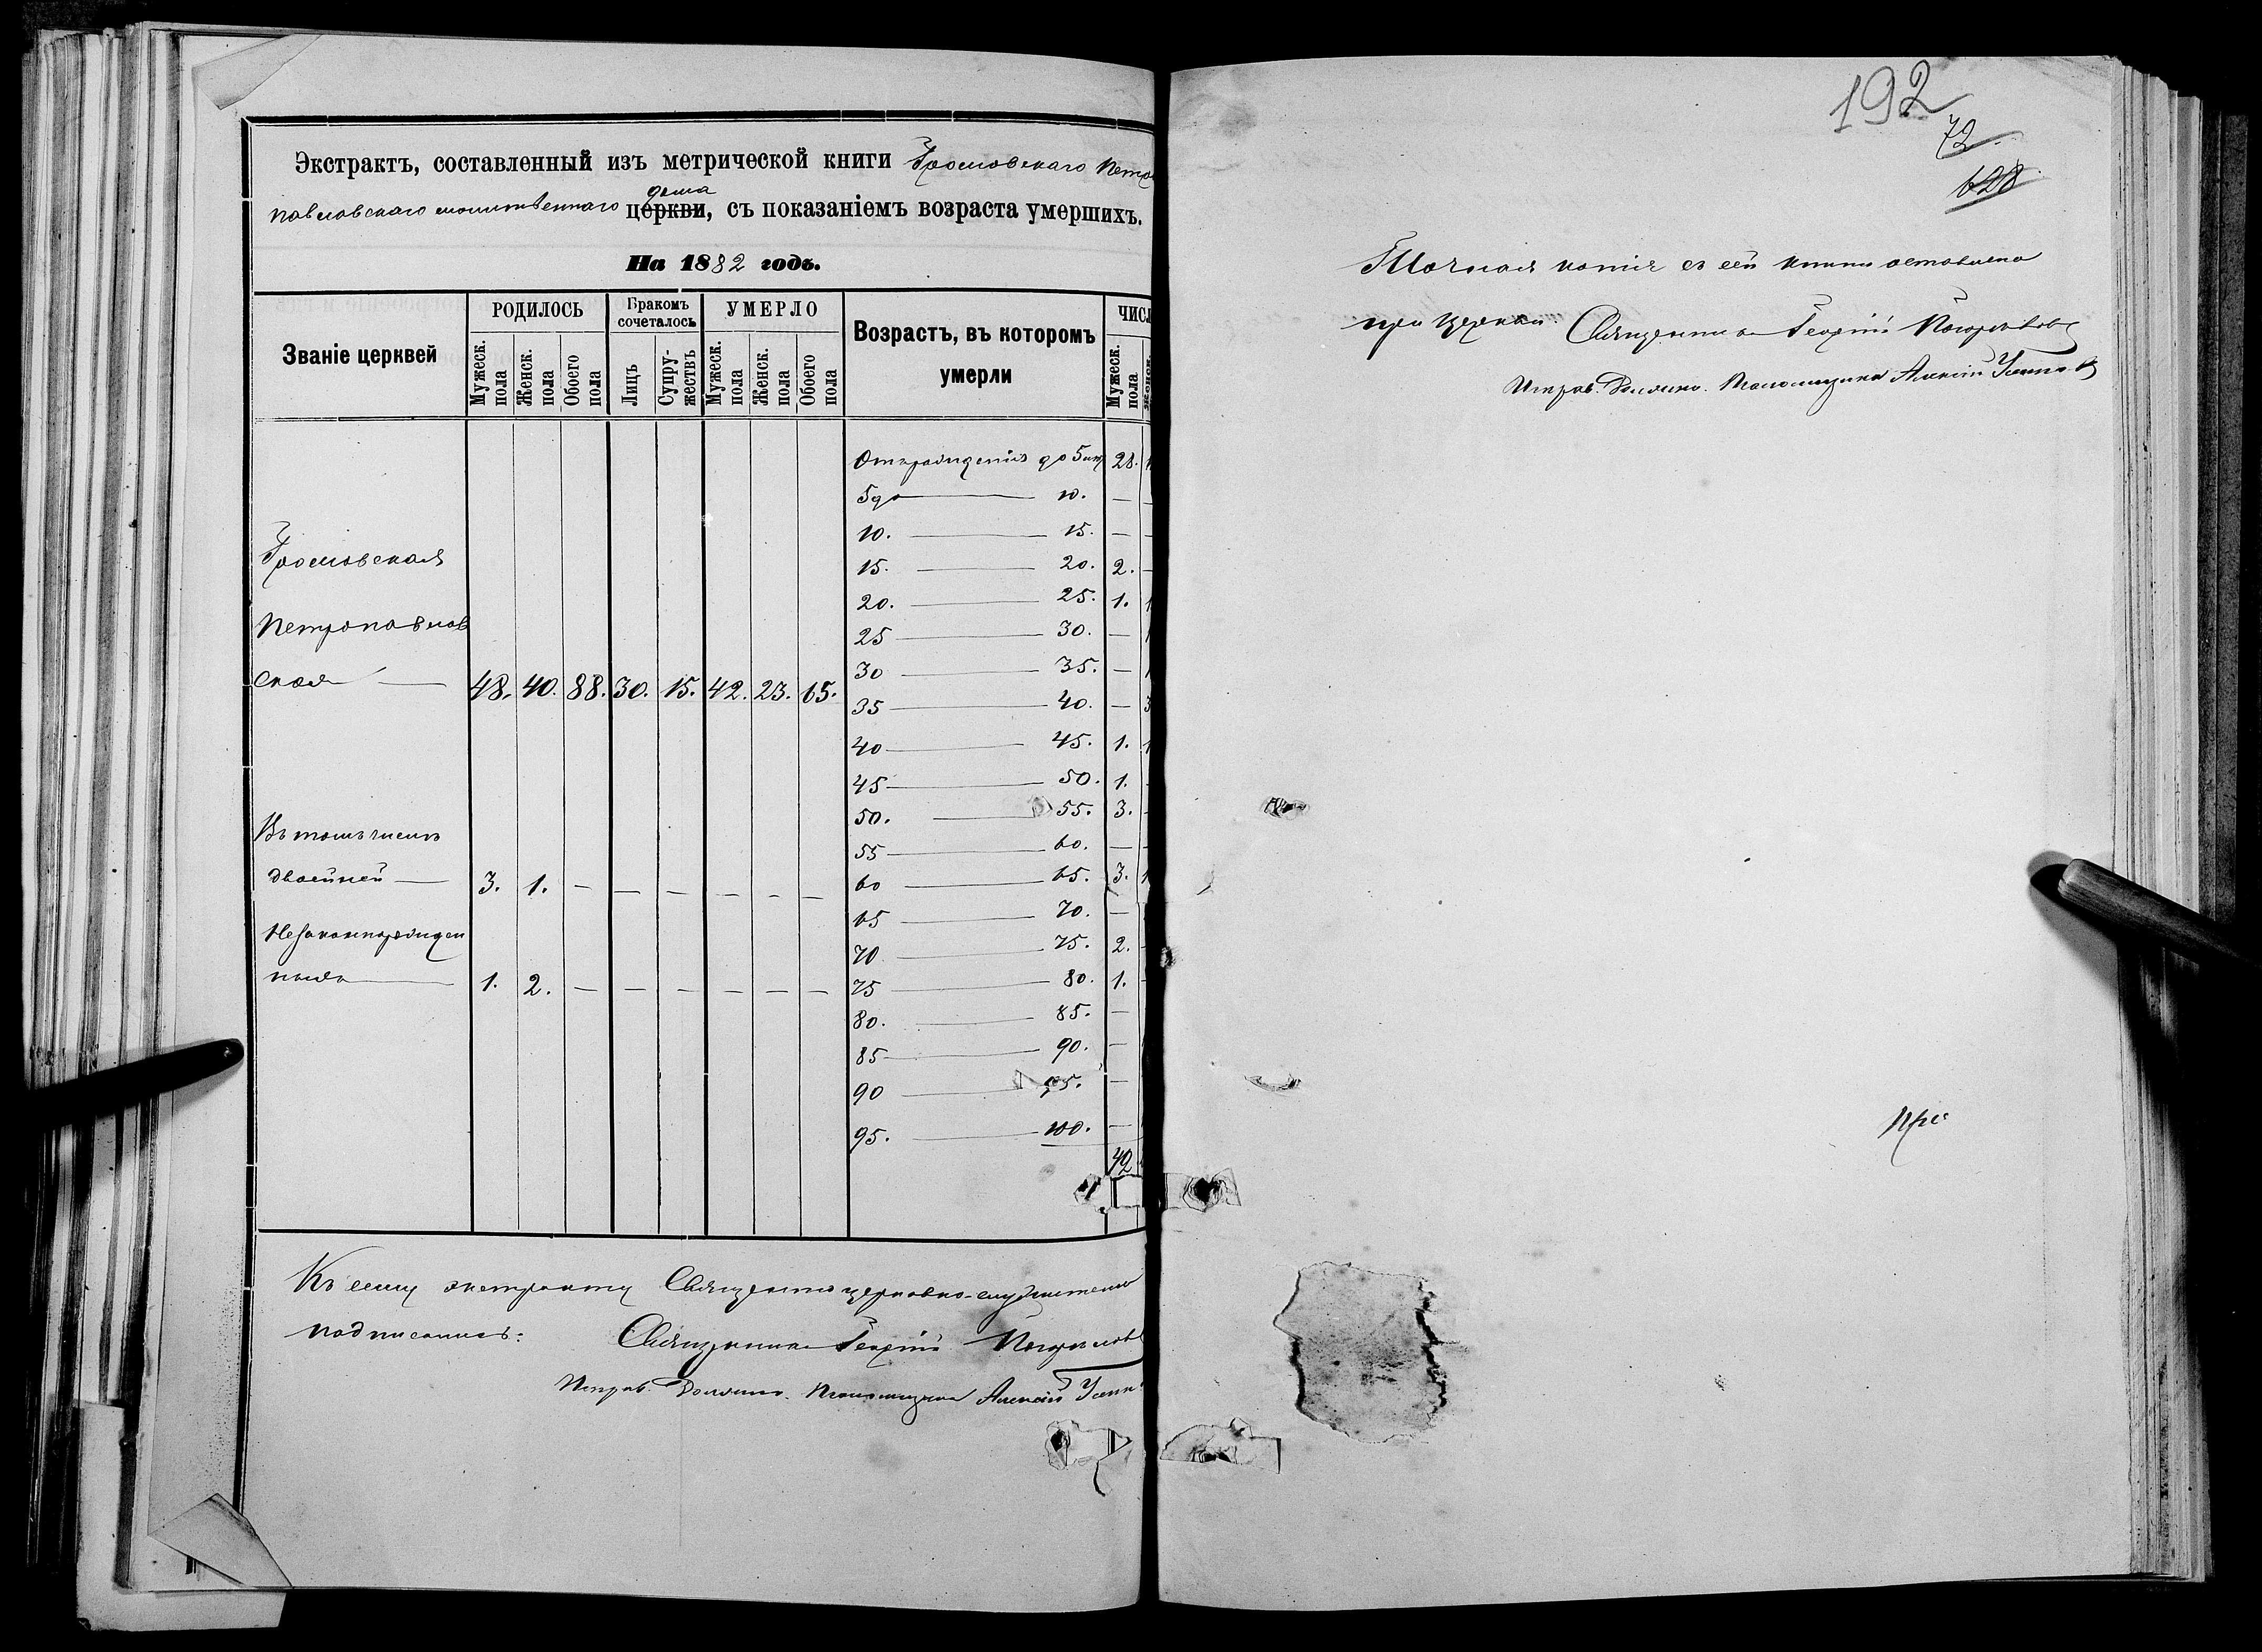 Экстрактъ, составленный изъ метрической книги Громовскаго Петро
павловскаго молитвеннаго дома церкви, съ показаніемъ возраста умершихъ.
На 1882 годъ.
Званіе церквей
РОДИЛОСЬ
Мужеск. пола
Женск. пола
Обоего пола
Бракомъ сочеталось
Лицъ
Супружествъ
УМЕРЛО
Мужеск. пола
Женск. пола
Обоего пола
Возрастъ, въ которомъ умерли
ЧИСЛ
Мужеск. пола
Женск.
Громовская
Петропавлов
ская — 48. 40. 88. 30. 15. 42. 23. 65.
Въ томъ числѣ
двойней — 3. 1. — — — — — —
Незаконнорожден
ныхъ — 1. 2. — — — — — —
Отъ рожденія до 5 лѣт 28.
5 до — 10. —
10. — 15. —
15. — 20. 2.
20. — 25. 1.
25 — 30. —
30 — 35. —
35 — 40. — 3
40 — 45. 1.
45 — 50. 1.
50. — 55. 3.
55 — 60. —
60 — 65. 3.
65 — 70. —
70 — 75. 2.
75 — 80. 1.
80. — 85. —
85 — 90. —
90 — 95. —
95. — 100. —
42
Къ сему экстракту Священно церковно-служители
подписались:
Священникъ Георгій
Исправ. Должно. Псаломщика Алексѣй
192
72.
628
Точная копія съ сей книги оставлена
при церкви. Священникъ Георгій
Исправ. Должно. Псаломщика Алексѣй